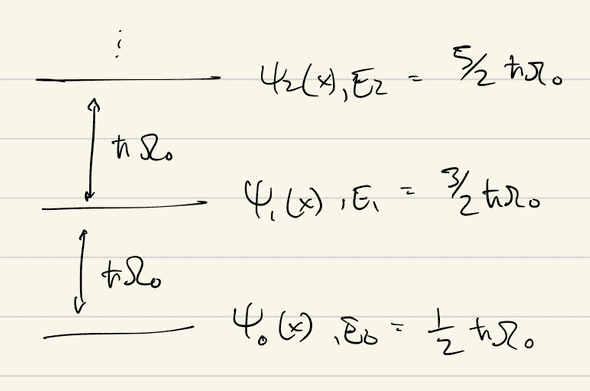 ⋮
ψ₂(x), E₂ = 5/2 ħΩ₀
ħΩ₀
ψ₁(x), E₁ = 3/2 ħΩ₀
ħΩ₀
ψ₀(x), E₀ = 1/2 ħΩ₀